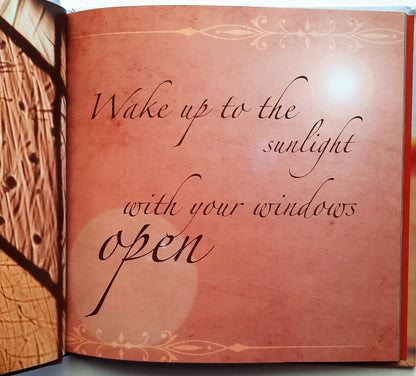 Wake up to the
sunlight
with your windows
open